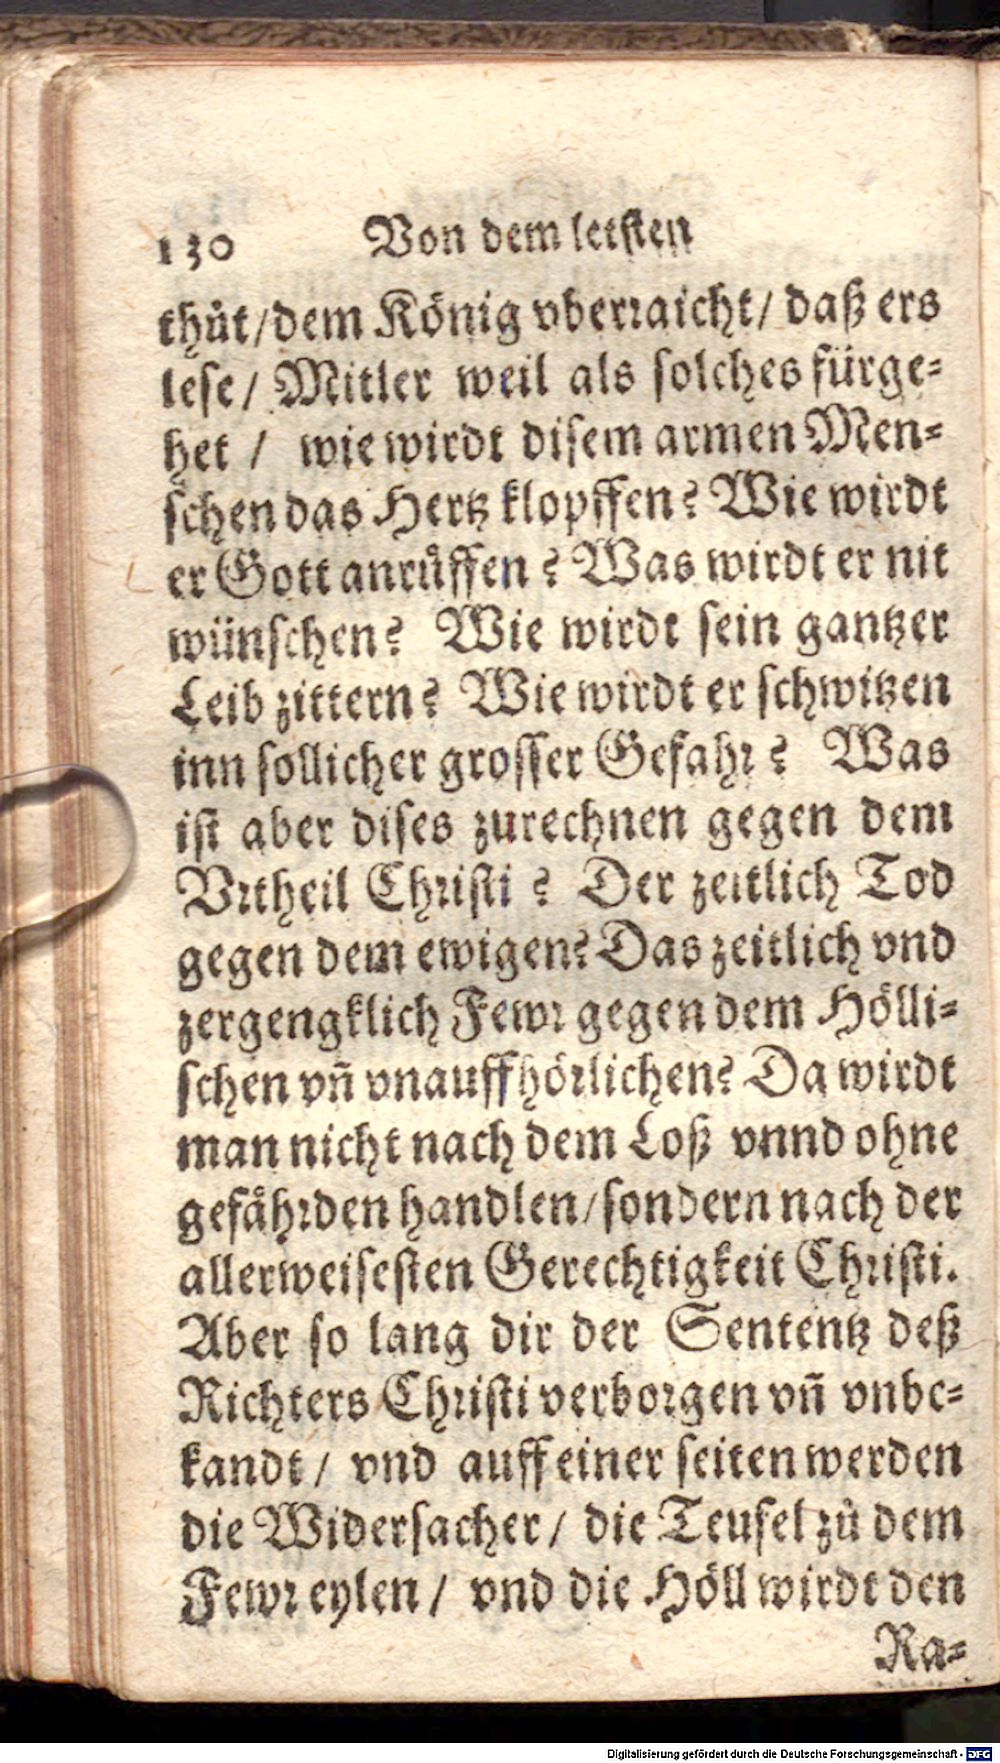 130 Von dem letsten
thuͦt/dem König vberꝛaicht/ daß ers
lese/ Mitler weil als solches fürge-
het / wie wirdt disem armen Men-
schen das Hertz klopffen? Wie wirdt
er Gott anruͤffen? Was wirdt er nit
wünschen? Wie wirdt sein gantzer
Leib zittern? Wie wirdt er schwitzen
inn sollicher grosser Gefahꝛ? Was
ist aber dises zurechnen gegen dem
Vꝛtheil Chꝛisti? Der zeitlich Tod
gegen dem ewigen? Das zeitlich vnd
zergengklich Fewꝛ gegen dem Hölli-
schen vñ vnauffhöꝛlichen? Da wirdt
man nicht nach dem Loß vnnd ohne
gefaͤhꝛden handlen/sondern nach der
allerweisesten Gerechtigkeit Chꝛisti.
Aber so lang dir der Sententz deß
Richters Chꝛisti verboꝛgen vñ vnbe-
kandt/ vnd auff einer seiten werden
die Widersacher/ die Teufel zuͦ dem
Fewꝛ eylen/ vnd die Höll wirdt den
Ra-
Digitalisierung gefördert durch die Deutsche Forschungsgemeinschaft - DFG